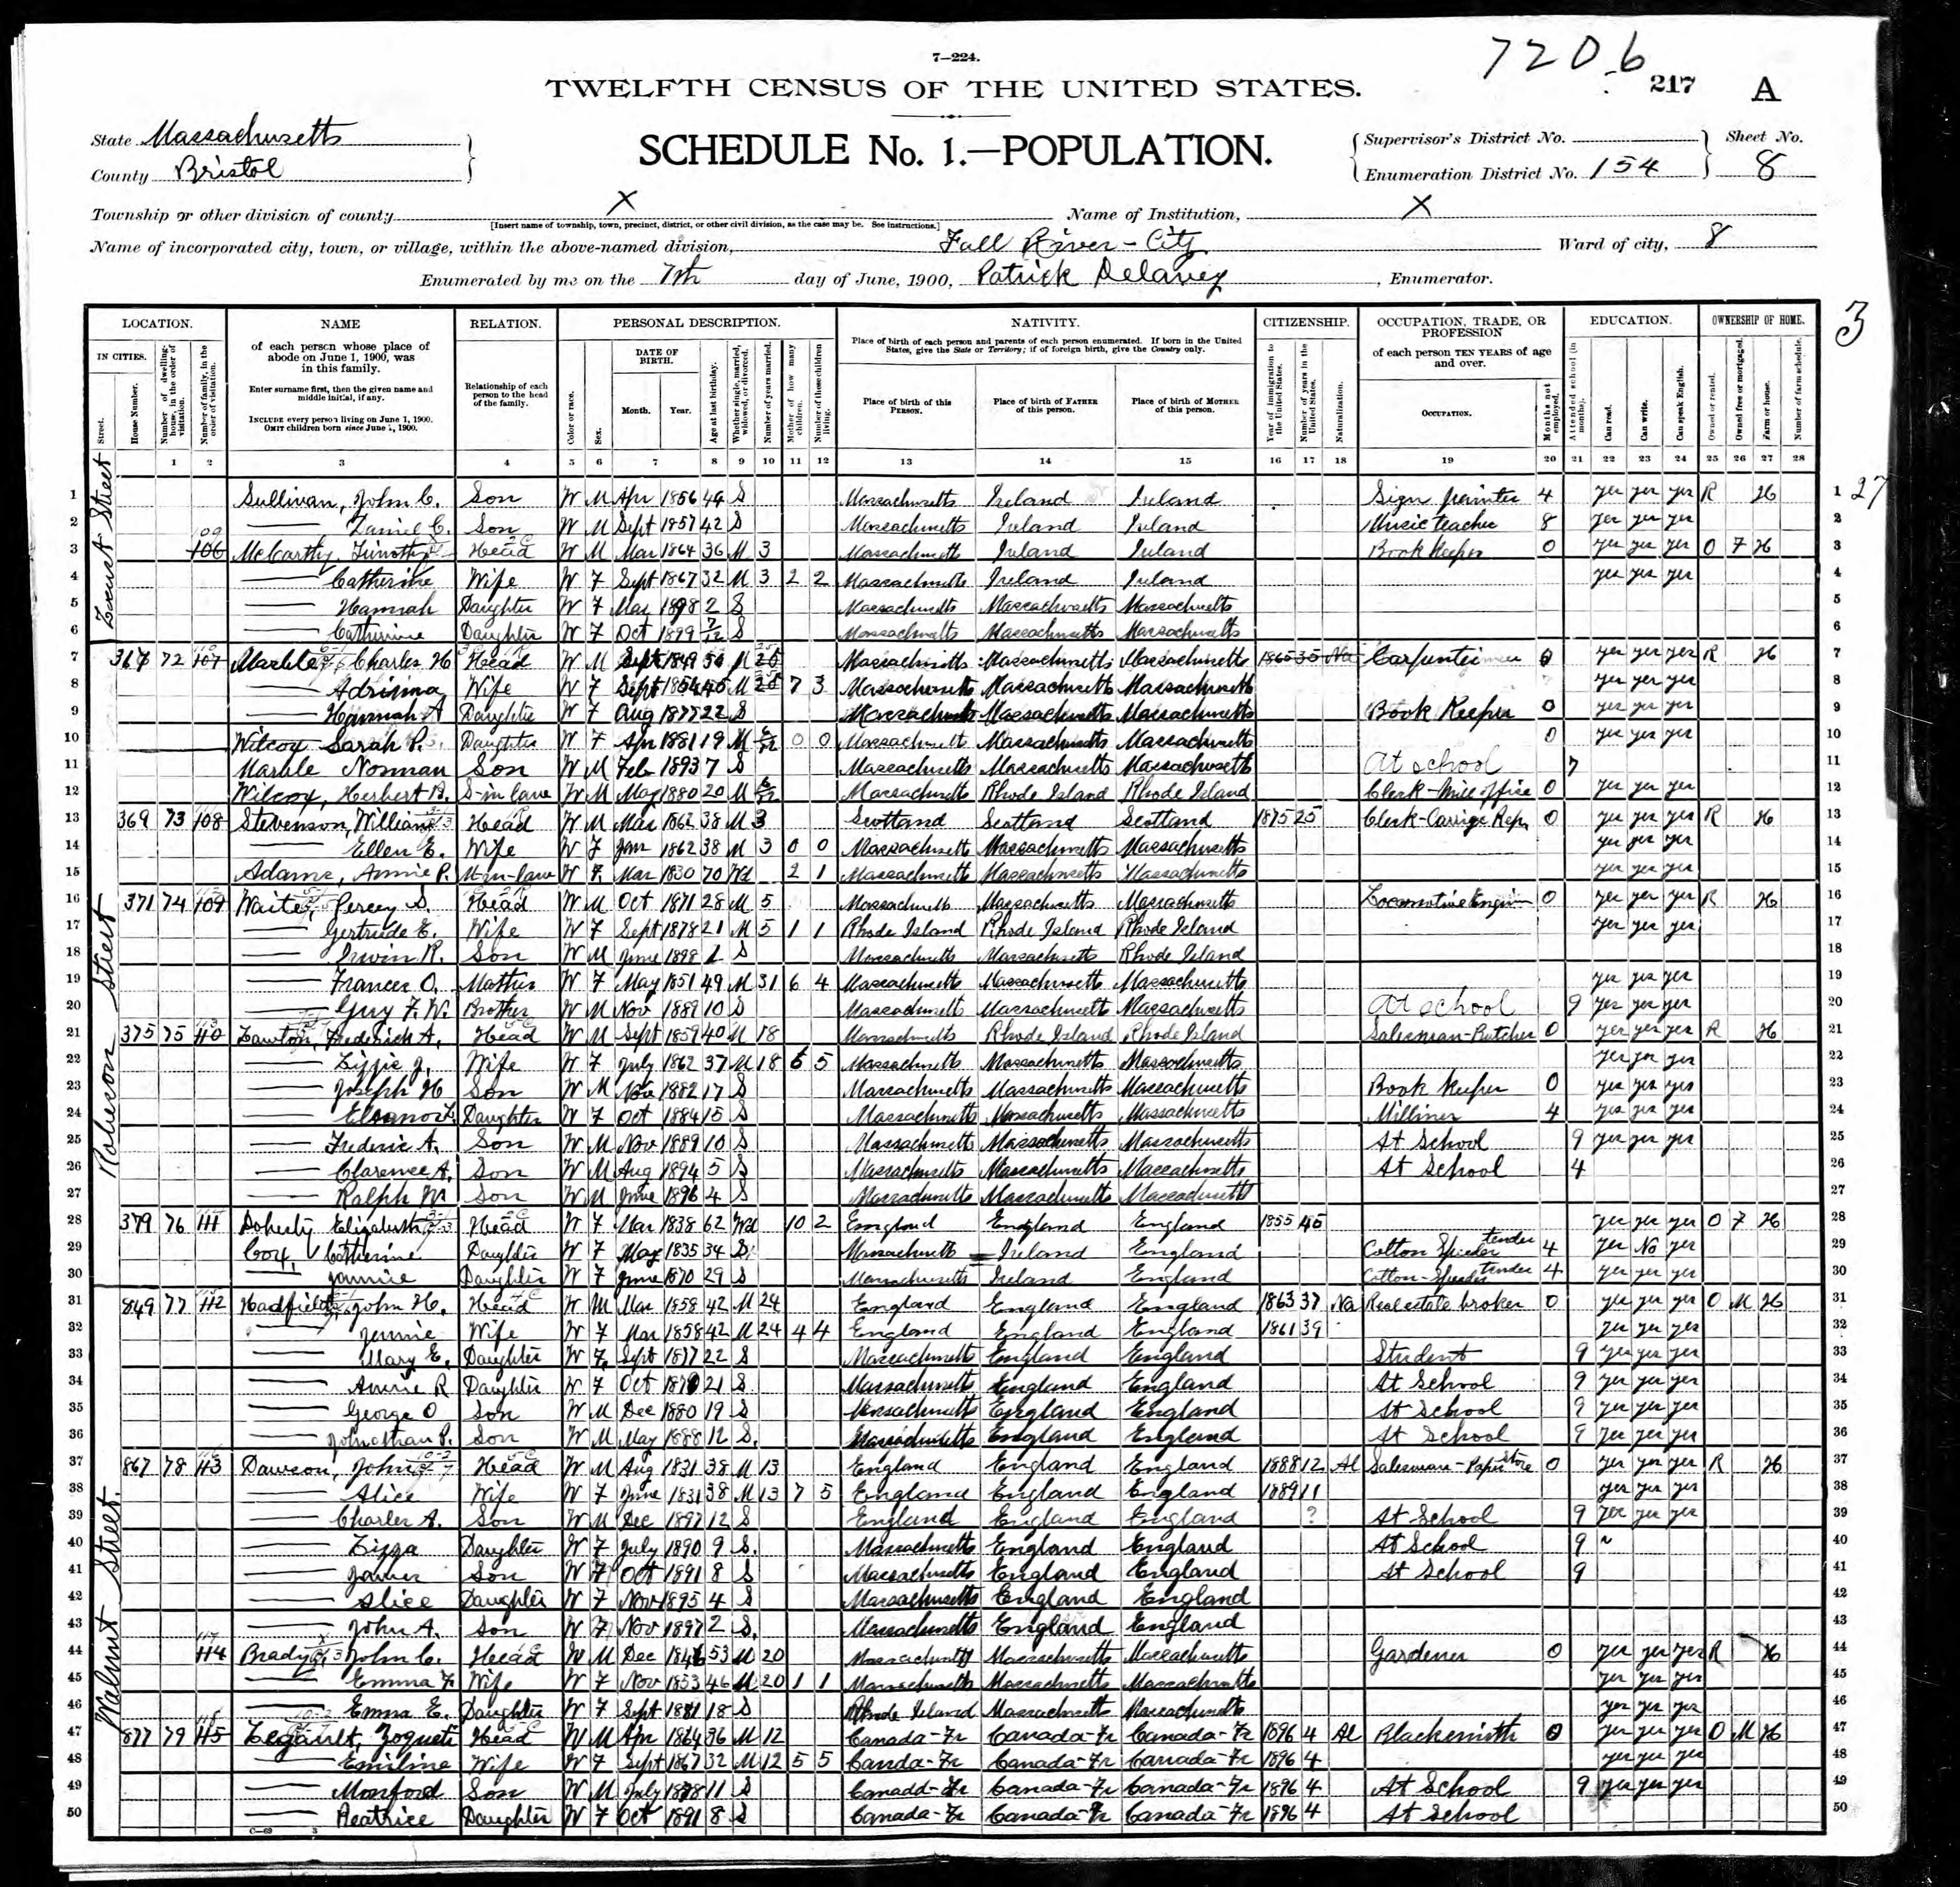 7—224.
7206
217 A
TWELFTH CENSUS OF THE UNITED STATES.
State Massachusetts
County Bristol
SCHEDULE No. 1.—POPULATION.
Supervisor's District No. Sheet No.
Enumeration District No. 154 8
Township or other division of county X Name of Institution, X
[Insert name of township, town, precinct, district, or other civil division, as the case may be. See instructions.]
Name of incorporated city, town, or village, within the above-named division, Fall River-City Ward of city, 8
Enumerated by me on the 7th day of June, 1900, Patrick Delaney, Enumerator.
3
27
LOCATION. NAME RELATION. PERSONAL DESCRIPTION. NATIVITY. CITIZENSHIP. OCCUPATION, TRADE, OR PROFESSION EDUCATION. OWNERSHIP OF HOME.
IN CITIES. Street. House Number. Number of dwelling-house, in the order of visitation. Number of family, in the order of visitation.
of each person whose place of abode on June 1, 1900, was in this family.
Enter surname first, then the given name and middle initial, if any.
INCLUDE every person living on June 1, 1900. OMIT children born since June 1, 1900.
Relationship of each person to the head of the family.
Color or race. Sex. DATE OF BIRTH. Month. Year. Age at last birthday. Whether single, married, widowed, or divorced. Number of years married. Mother of how many children. Number of these children living.
Place of birth of each person and parents of each person enumerated. If born in the United States, give the State or Territory; if of foreign birth, give the Country only.
Place of birth of this PERSON. Place of birth of FATHER of this person. Place of birth of MOTHER of this person.
Year of immigration to the United States. Number of years in the United States. Naturalization.
of each person TEN YEARS of age and over.
OCCUPATION. Months not employed.
Attended school (in months). Can read. Can write. Can speak English.
Owned or rented. Owned free or mortgaged. Farm or house. Number of farm schedule.
1 2 3 4 5 6 7 8 9 10 11 12 13 14 15 16 17 18 19 20 21 22 23 24 25 26 27 28
Locust Street
1 Sullivan, John C. Son W M Apr 1856 44 S Massachusetts Ireland Ireland Sign painter 4 yes yes yes R H 1
2 Daniel C. Son W M Sept 1857 42 S Massachusetts Ireland Ireland Music teacher 8 yes yes yes 2
3 106 McCarthy, Timothy Head W M Mar 1864 36 M 3 Massachusetts Ireland Ireland Book keeper 0 yes yes yes O F H 3
4 Catherine Wife W F Sept 1867 32 M 3 2 2 Massachusetts Ireland Ireland yes yes yes 4
5 Hannah Daughter W F Mar 1898 2 S Massachusetts Massachusetts Massachusetts 5
6 Catherine Daughter W F Oct 1899 7/12 S Massachusetts Massachusetts Massachusetts 6
Robeson Street
7 367 72 107 Marble, Charles H Head W M Sept 1849 50 M 25 Massachusetts Massachusetts Massachusetts 1865 35 Na Carpenter 0 yes yes yes R H 7
8 Wife W F Sept 1854 45 M 25 7 3 Massachusetts Massachusetts Massachusetts yes yes yes 8
9 Hannah A Daughter W F Aug 1877 22 S Massachusetts Massachusetts Massachusetts Book Keeper 0 yes yes yes 9
10 Wilcox Sarah P. Daughter W F Apr 1881 19 M 6/12 0 0 Massachusetts Massachusetts Massachusetts 0 yes yes yes 10
11 Marble Norman Son W M Feb 1893 7 S Massachusetts Massachusetts Massachusetts At school 7 11
12 Wilcox, Herbert S-in law W M May 1880 20 M 6/12 Massachusetts Rhode Island Rhode Island Clerk-Mill office 0 yes yes yes 12
13 369 73 108 Stevenson, William Head W M Mar 1862 38 M 3 Scotland Scotland Scotland 1875 25 Clerk-Carrige Rep. 0 yes yes yes R H 13
14 Ellen E. Wife W F Jan 1862 38 M 3 0 0 Massachusetts Massachusetts Massachusetts yes yes yes 14
15 Adams, Annie P. M-in-law W F Mar 1830 70 Wd 2 1 Massachusetts Massachusetts Massachusetts yes yes yes 15
16 371 74 109 Waite, Percy S. Head W M Oct 1871 28 M 5 Massachusetts Massachusetts Massachusetts Locomotive Engin 0 yes yes yes R H 16
17 Gertrude E. Wife W F Sept 1878 21 M 5 1 1 Rhode Island Rhode Island Rhode Island yes yes yes 17
18 Irwin R. Son W M June 1898 1 S Massachusetts Massachusetts Rhode Island 18
19 Frances O. Mother W F May 1851 49 M 31 6 4 Massachusetts Massachusetts Massachusetts yes yes yes 19
20 Guy F. W. Brother W M Nov 1889 10 S Massachusetts Massachusetts Massachusetts At school 9 yes yes yes 20
21 375 75 110 Lawton, Frederick A. Head W M Sept 1859 40 M 18 Massachusetts Rhode Island Rhode Island Salesman-Butcher 0 yes yes yes R H 21
22 Lizzie J. Wife W F July 1862 37 M 18 6 5 Massachusetts Massachusetts Massachusetts yes yes yes 22
23 Joseph H Son W M Nov 1882 17 S Massachusetts Massachusetts Massachusetts Book keeper 0 yes yes yes 23
24 Eleanor L. Daughter W F Oct 1884 15 S Massachusetts Massachusetts Massachusetts Milliner 4 yes yes yes 24
25 Frederic A. Son W M Nov 1889 10 S Massachusetts Massachusetts Massachusetts At School 9 yes yes yes 25
26 Clarence A. Son W M Aug 1894 5 S Massachusetts Massachusetts Massachusetts At School 4 26
27 Ralph W Son W M June 1896 4 S Massachusetts Massachusetts Massachusetts 27
28 379 76 111 Doherty Elizabeth Head W F Mar 1838 62 Wd 10 2 England England England 1855 45 yes yes yes O F H 28
29 Coy, Catherine Daughter W F May 1835 34 S Massachusetts Ireland England Cotton Speeder tender 4 yes No yes 29
30 Jannie Daughter W F June 1870 29 S Massachusetts Ireland England Cotton-Speeder tender 4 yes yes yes 30
Walnut Street.
31 849 77 112 Hadfield, John H. Head W M Mar 1858 42 M 24 England England England 1863 37 Na Real estate broker 0 yes yes yes O M H 31
32 Jennie Wife W F Mar 1858 42 M 24 4 4 England England England 1861 39 yes yes yes 32
33 Mary E. Daughter W F Sept 1877 22 S Massachusetts England England Student 9 yes yes yes 33
34 Annie R Daughter W F Oct 21 S Massachusetts England England At School 9 yes yes yes 34
35 George O Son W M Dec 1880 19 S Massachusetts England England At School 9 yes yes yes 35
36 Johnathan P. Son W M May 1888 12 S. Massachusetts England England At School 9 yes yes yes 36
37 867 78 113 Dawson, John Head W M Aug 1831 38 M 13 England England England 1888 12 Al Salesman-Paper store 0 yes yes yes R H 37
38 Alice Wife W F June 1831 38 M 13 7 5 England England England 1889 11 yes yes yes 38
39 Charles A. Son W M Dec 1897 12 S England England England ? At School 9 yes yes yes 39
40 Lizza Daughter W F July 1890 9 S. Massachusetts England England At School 9 40
41 James Son W F Oct 1891 8 S Massachusetts England England At School 9 41
42 Alice Daughter W F Nov 1895 4 S Massachusetts England England 42
43 John A. Son W F Nov 1897 2 S. Massachusetts England England 43
44 114 Brady, John C. Head W M Dec 1846 53 M 20 Massachusetts Massachusetts Massachusetts Gardener 0 yes yes yes R H 44
45 Emma F Wife W F Nov 1853 46 M 20 1 1 Massachusetts Massachusetts Massachusetts yes yes yes 45
46 Emma E. Daughter W F Sept 1881 18 S Rhode Island Massachusetts Massachusetts yes yes yes 46
47 877 79 115 Legault, Head W M Apr 1864 36 M 12 Canada-Fr Canada-Fr Canada-Fr 1896 4 Al Blacksmith 0 yes yes yes O M H 47
48 Emiline Wife W F Sept 1867 32 M 12 5 5 Canada-Fr Canada-Fr Canada-Fr 1896 4 yes yes yes 48
49 Monford Son W M July 1888 11 S Canada-Fr Canada-Fr Canada-Fr 1896 4 At School 9 yes yes yes 49
50 Beatrice Daughter W F Oct 1891 8 S Canada-Fr Canada-Fr Canada-Fr 1896 4 At School 50
C—69 3